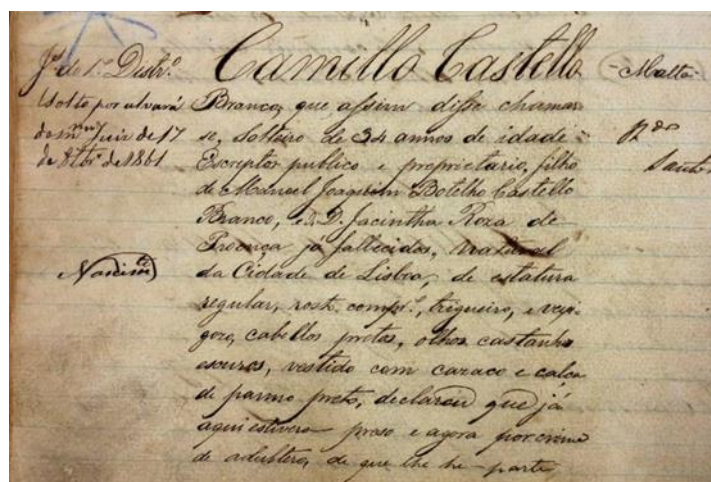 Jz. de 1.º Distr.º
Solto por alvará
do mmo Juiz de 17
de 8tbr.º de 1861
Nascimto
Camillo Castello
Branco, que assim disse chamar-
se, solteiro de 34 annos de idade
Escriptor publico e proprietario, filho
de Manoel Joaquim Botelho Castello
Branco, e D. Jacintha Roza de
Proença já fallecidos, natural
da Cidade de Lisboa, de estatura
regular, rosto comp.º, trigueiro, e
cabellos pretos, olhos castanhos
escuros, vestido com casaco e calça
de panno preto, declarou que já
aqui estivera preso e agora por crime
de adulterio, de que lhe he parte,
Matta